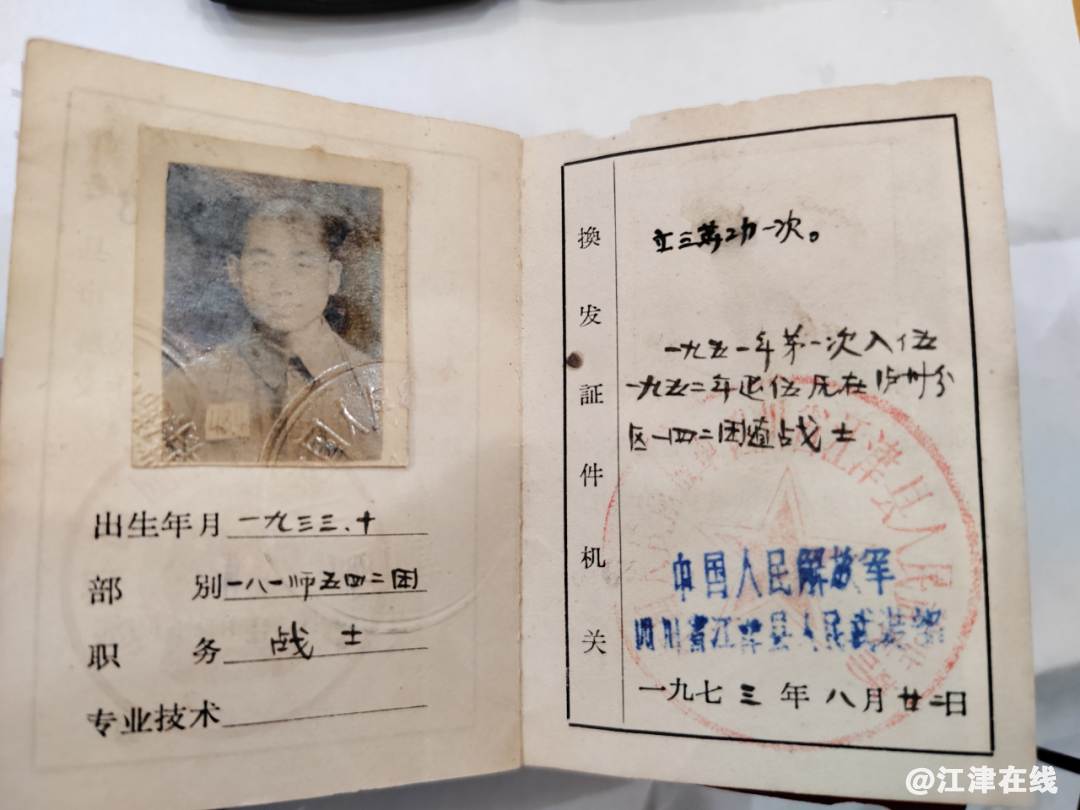 出生年月 一九三三、十
部别 一八一师五四二团
职务 战士
专业技术
换发証件机关
立三等功一次。
一九五一年第一次入伍
一九五二年退伍 在泸州分
区一四二团 战士
江津县人民
中国人民解放军
四川省江津县人民武装部
一九七三年八月廿二日
@江津在线